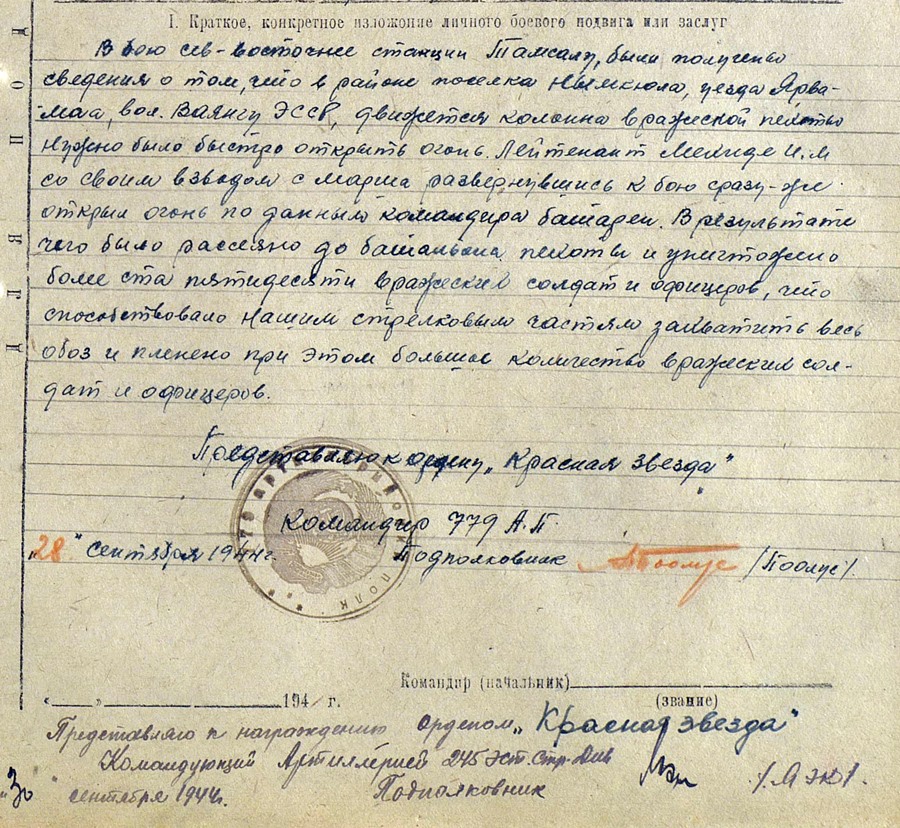 I. Краткое, конкретное изложение личного боевого подвига или заслуг
В бою сев-восточнее станции Тамсалу, были получены
сведения о том, что в районе поселка Нымкюла, уезда Ярва-
маа, вол. Ваянгу ЭССР, движется колонна вражеской пехоты
Нужно было быстро открыть огонь. Лейтенант И.М
со своим взводом с марша развернувшись к бою сразу-же
открыл огонь по данным командира батареи. В результате
чего было рассеяно до батальона пехоты и уничтожено
более ста пятидесяти вражеских солдат и офицеров, что
способствовало нашим стрелковым частям захватить весь
обоз и пленено при этом большое количество вражеских сол-
дат и офицеров.
Представляю к ордену „Красная звезда"
Командир 779 А.П.
„28" сентября 1944 г. Подполковник /Поолус/.
Командир (начальник)
(звание)
« » 194 г.
Представляю к награждению орденом „Красная звезда"
Командующий Артиллерией Эст. Стр. Див
"30 сентября 1944г. Подполковник